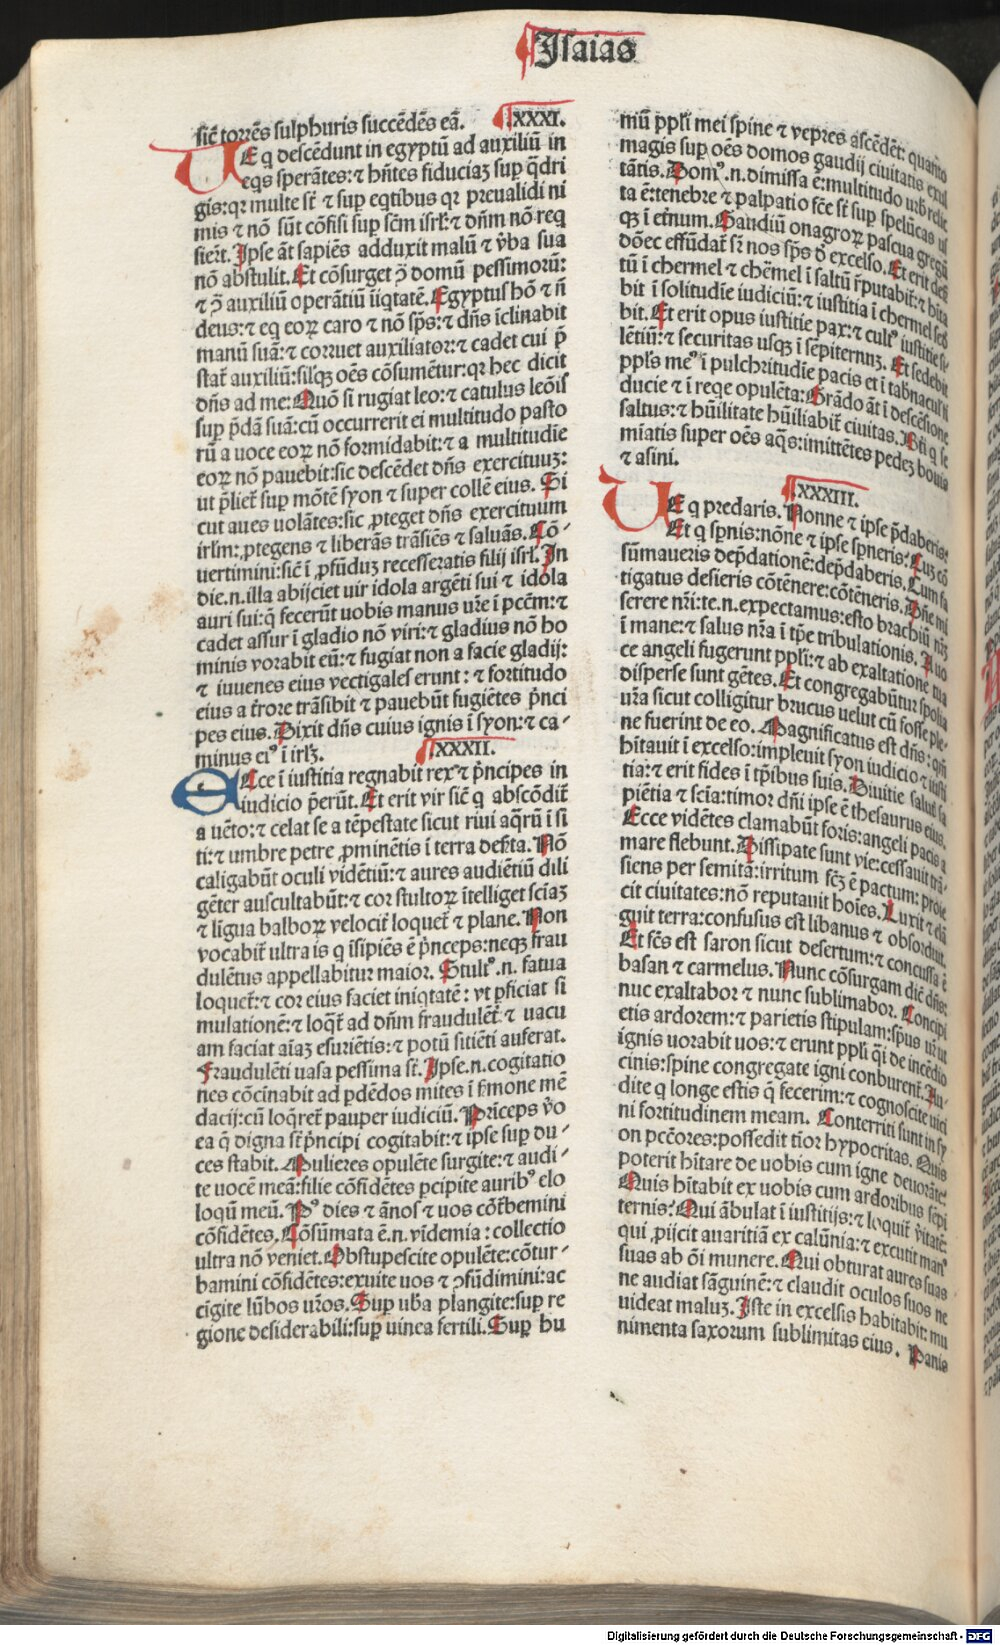 Isaias
sic̄ torrēs sulphuris succēdēs eā. XXXI.
UE q̄ descēdunt in egyptū ad auxiliū in
eq̄s sperātes: ⁊ hn̄tes fiduciaꝫ suꝑ q̄dri
gis: qꝛ multe st̄ ⁊ suꝑ eqtibus qꝛ preualidi ni
mis ⁊ nō sūt cōfisi suꝑ scm̄ isrl̄: ⁊ dn̄m nō req
sier̄t. Ipse āt sapiēs adduxit malū ⁊ v̄ba sua
nō abstulit. Et cōsurget ꝯ̄ domū pessimorū:
⁊ ꝯ̄ auxiliū operātiū iīqtatē. Egyptus hō ⁊ nō
deus: ⁊ eq eoꝝ caro ⁊ nō sp̄s: ⁊ dn̄s īclinabit
manū suā: ⁊ corruet auxiliator: ⁊ cadet cui p̄
stat̄ auxiliū: silqꝫ oēs cōsumētur: qꝛ hec dicit
dn̄s ad me: Quō si rugiat leo: ⁊ catulus leōis
suꝑ p̄dā suā: cū occurrerit ei multitudo pasto
rū a uoce eoꝝ nō formidabit: ⁊ a multitudīe
eoꝝ nō pauebit: sic descēdet dn̄s exercituuꝫ:
ut p̄liet̄ suꝑ mōtē syon ⁊ super collē eius. Si
cut aues uolātes: sic ꝓteget dn̄s exercituum
irlm̄: ꝓtegens ⁊ liberās trāsiēs ⁊ saluās. Cō-
uertimini: sic̄ ī ꝓfūdū recesseratis filij isrl̄. In
die. n. illa abijciet uir idola argēti sui ⁊ idola
auri sui: q̄ fecerūt uobis manus ur̄e ī pcc̄m: ⁊
cadet assur ī gladio nō viri: ⁊ gladius nō ho
minis vorabit eū: ⁊ fugiat non a facie gladij:
⁊ iuuenes eius vectigales erunt: ⁊ fortitudo
eius a t̄rore trāsibit ⁊ pauebūt fugiētes p̄nci
pes eius. Dixit dn̄s cuius ignis ī syon: ⁊ ca-
minus eiꝰ ī irlꝫ. XXXII.
ECce ī iustitia regnabit rex ⁊ p̄ncipes in
iudicio p̄erūt. Et erit vir sic̄ q̄ abscōdit̄
a uēto: ⁊ celat se a tēpestate sicut riui aq̄rū ī si
ti: ⁊ umbre petre ꝓminētis ī terra desꝑta. Nō
caligabūt oculi vidētiū: ⁊ aures audiētiū dili
gēter auscultabūt: ⁊ cor stultoꝝ ītelliget sciāꝫ
⁊ ligua balboꝝ velocit̄ loquet̄ ⁊ plane. Non
vocabit̄ ultra is q īsipiēs ē p̄nceps: neqꝫ frau
dulētus appellabitur maior. Stultꝰ. n. fatua
loquet̄: ⁊ cor eius faciet iniqtatē: vt ꝑficiat si
mulationē: ⁊ loqt̄ ad dn̄m fraudulēt̄ ⁊ uacu
am faciat aīaꝫ esuriētis: ⁊ potū sitiēti auferat.
Fraudulēti uasa pessima st̄. Ipse. n. cogitatio
nes cōcinabit ad ꝑdēdos mites ī sermone mē
dacij: cū loqret̄ pauper iudiciū. Princeps v̄o
ea q̄ digna st̄ p̄ncipi cogitabit: ⁊ ipse suꝑ du-
ces stabit. Mulieres opulēte surgite: ⁊ audi-
te uocē meā: filie cōfidētes ꝑcipite auribꝰ elo
loqū meū. Pꝰ dies ⁊ ānos ⁊ uos cōt̄bemini
cōfidētes. Cōsūmata ē. n. vīdemia: collectio
ultra nō veniet. Obstupescite opulēte: cōtur-
bamini cōfidētes: exuite uos ⁊ ꝯfūdimini: ac
cigite lūbos ur̄os. Suꝑ ub̄a plangite: suꝑ re
gione desiderabili: suꝑ uinea fertili. Suꝑ hu
mū ꝑpl̄i mei spine ⁊ vepres ascēdēt: quāto
magis suꝑ oēs domos gaudij ciuitatis exul
tātis. Domꝰ. n. dimissa ē: multitudo urb̄ relic
ta ē: tenebre ⁊ palpatio fc̄e st̄ suꝑ spelūcas us
qꝫ ī et̄num. Gaudiū onagroꝝ pascua gregū
dōec effūdat̄ sr̄ nos sp̄s d̄ excelso. Et erit deser
tū ī chermel ⁊ chēmel ī saltū r̄putabit̄: ⁊ hīta
bit ī solitudīe iudiciū: ⁊ iustitia ī chermel sed
bit. Et erit opus iustitie pax: ⁊ cultꝰ iustitie si
lētiū: ⁊ securitas usqꝫ ī sēpiternuꝫ. Et sedebit
ppl̄s meꝰ ī pulchritudīe pacis et ī tabnacul̄ fi
ducie ⁊ ī reqe opulēta: Grādo āt ī descēsione
saltus: ⁊ hūilitate hūiliabit̄ ciuitas. Bt̄i q se
mīatis super oēs aq̄s: imittētes pedeꝫ bouis
⁊ asini.
XXXIII.
UE q predaris. Nonne ⁊ ipse p̄daberis:
Et q spn̄is: nōne ⁊ ipse spn̄eris: Cuꝫ cō
sūmaueris dep̄dationē: dep̄daberis. Cum fa
tigatus desieris cōtēnere: cōtēneris. Dn̄e mi
serere nr̄i: te. n. expectamus: esto brachiū nꝛ̄
ī mane: ⁊ salus nr̄a ī tp̄e tribulationis. A uo
ce angeli fugerunt ppl̄i: ⁊ ab exaltatione tua
disperse sunt gētes. Et congregabūtur spolia
ur̄a sicut colligitur brucus uelut cū fosse ple-
ne fuerint de eo. Magnificatus est dn̄s: qm̄
hītauit ī excelso: impleuit syon iudicio ⁊ iusti
tia: ⁊ erit fides ī tp̄ibus suis. Diuitie salutis sa
piētia ⁊ scīa: timor dn̄i ipse ē thesaurus eius.
Ecce vidētes clamabūt foris: angeli pacis a
mare flebunt. Dissipate sunt vie: cessauit trā-
siens per semitā: irritum fc̄ꝫ ē pactum: proie
cit ciuitates: nō reputauit hoīes. Luxit ⁊ elā
guit terra: confusus est libanus ⁊ obsorduit.
Et fc̄s est saron sicut desertum: ⁊ concussa ē
basan ⁊ carmelus. Nunc cōsurgam dic̄ dn̄s:
nuc exaltabor ⁊ nunc sublimabor. Concipi
etis ardorem: ⁊ parietis stipulam: sp̄us ur̄ ut
ignis uorabit uos: ⁊ erunt ppl̄i q̄i de incēdio
cinis: spine congregate igni conburent̄. Au-
dite q longe estis q̄ fecerim: ⁊ cognoscite vici
ni fortitudinem meam. Conterriti sunt in sy
on pcc̄ores: possedit tīor hypocritas. Quis
poterit hītare de uobis cum igne deuorāte:
Quis hītabit ex uobis cum ardoribus sēpi
ternis: Qui ābulat ī iustitijs: ⁊ loquit̄ v̄itatē:
qui ꝓijcit auaritiā ex calūnia: ⁊ excutit manꝰ
suas ab ōi munere. Qui obturat aures suas
ne audiat sāguinē: ⁊ claudit oculos suos ne
uideat maluꝫ. Iste in excelsis habitabit: mu
nimenta saxorum sublimitas eius. Panis
Digitalisierung gefördert durch die Deutsche Forschungsgemeinschaft - DFG